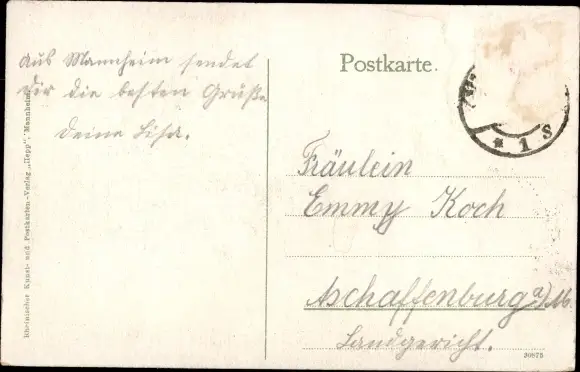 Aus Mannheim sendet
Dir die besten Grüße
Deine Lisa.
Postkarte.
* 1 S
Fräulein
Emmy Koch
Aschaffenburg a/M.
Landgericht.
Rheinischer Kunst- und Postkarten-Verlag „Hepp“, Mannheim
30875